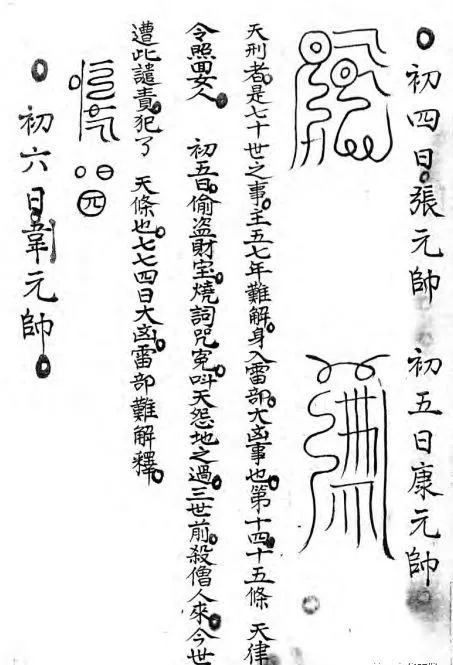 初四日張元帥 初五日康元帥
天刑者是七十世之事主五七年難解身入雷部大凶事也第十四十五條 天律
令照面女人 初五日偷盗財宝燒詞咒寃叫天怨地之過三世前殺僧人來今世
遭此譴責犯了 天條也七七四日大凶雷部難解釋
初六日韋元帥